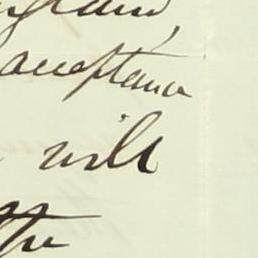 acceptance
will
the